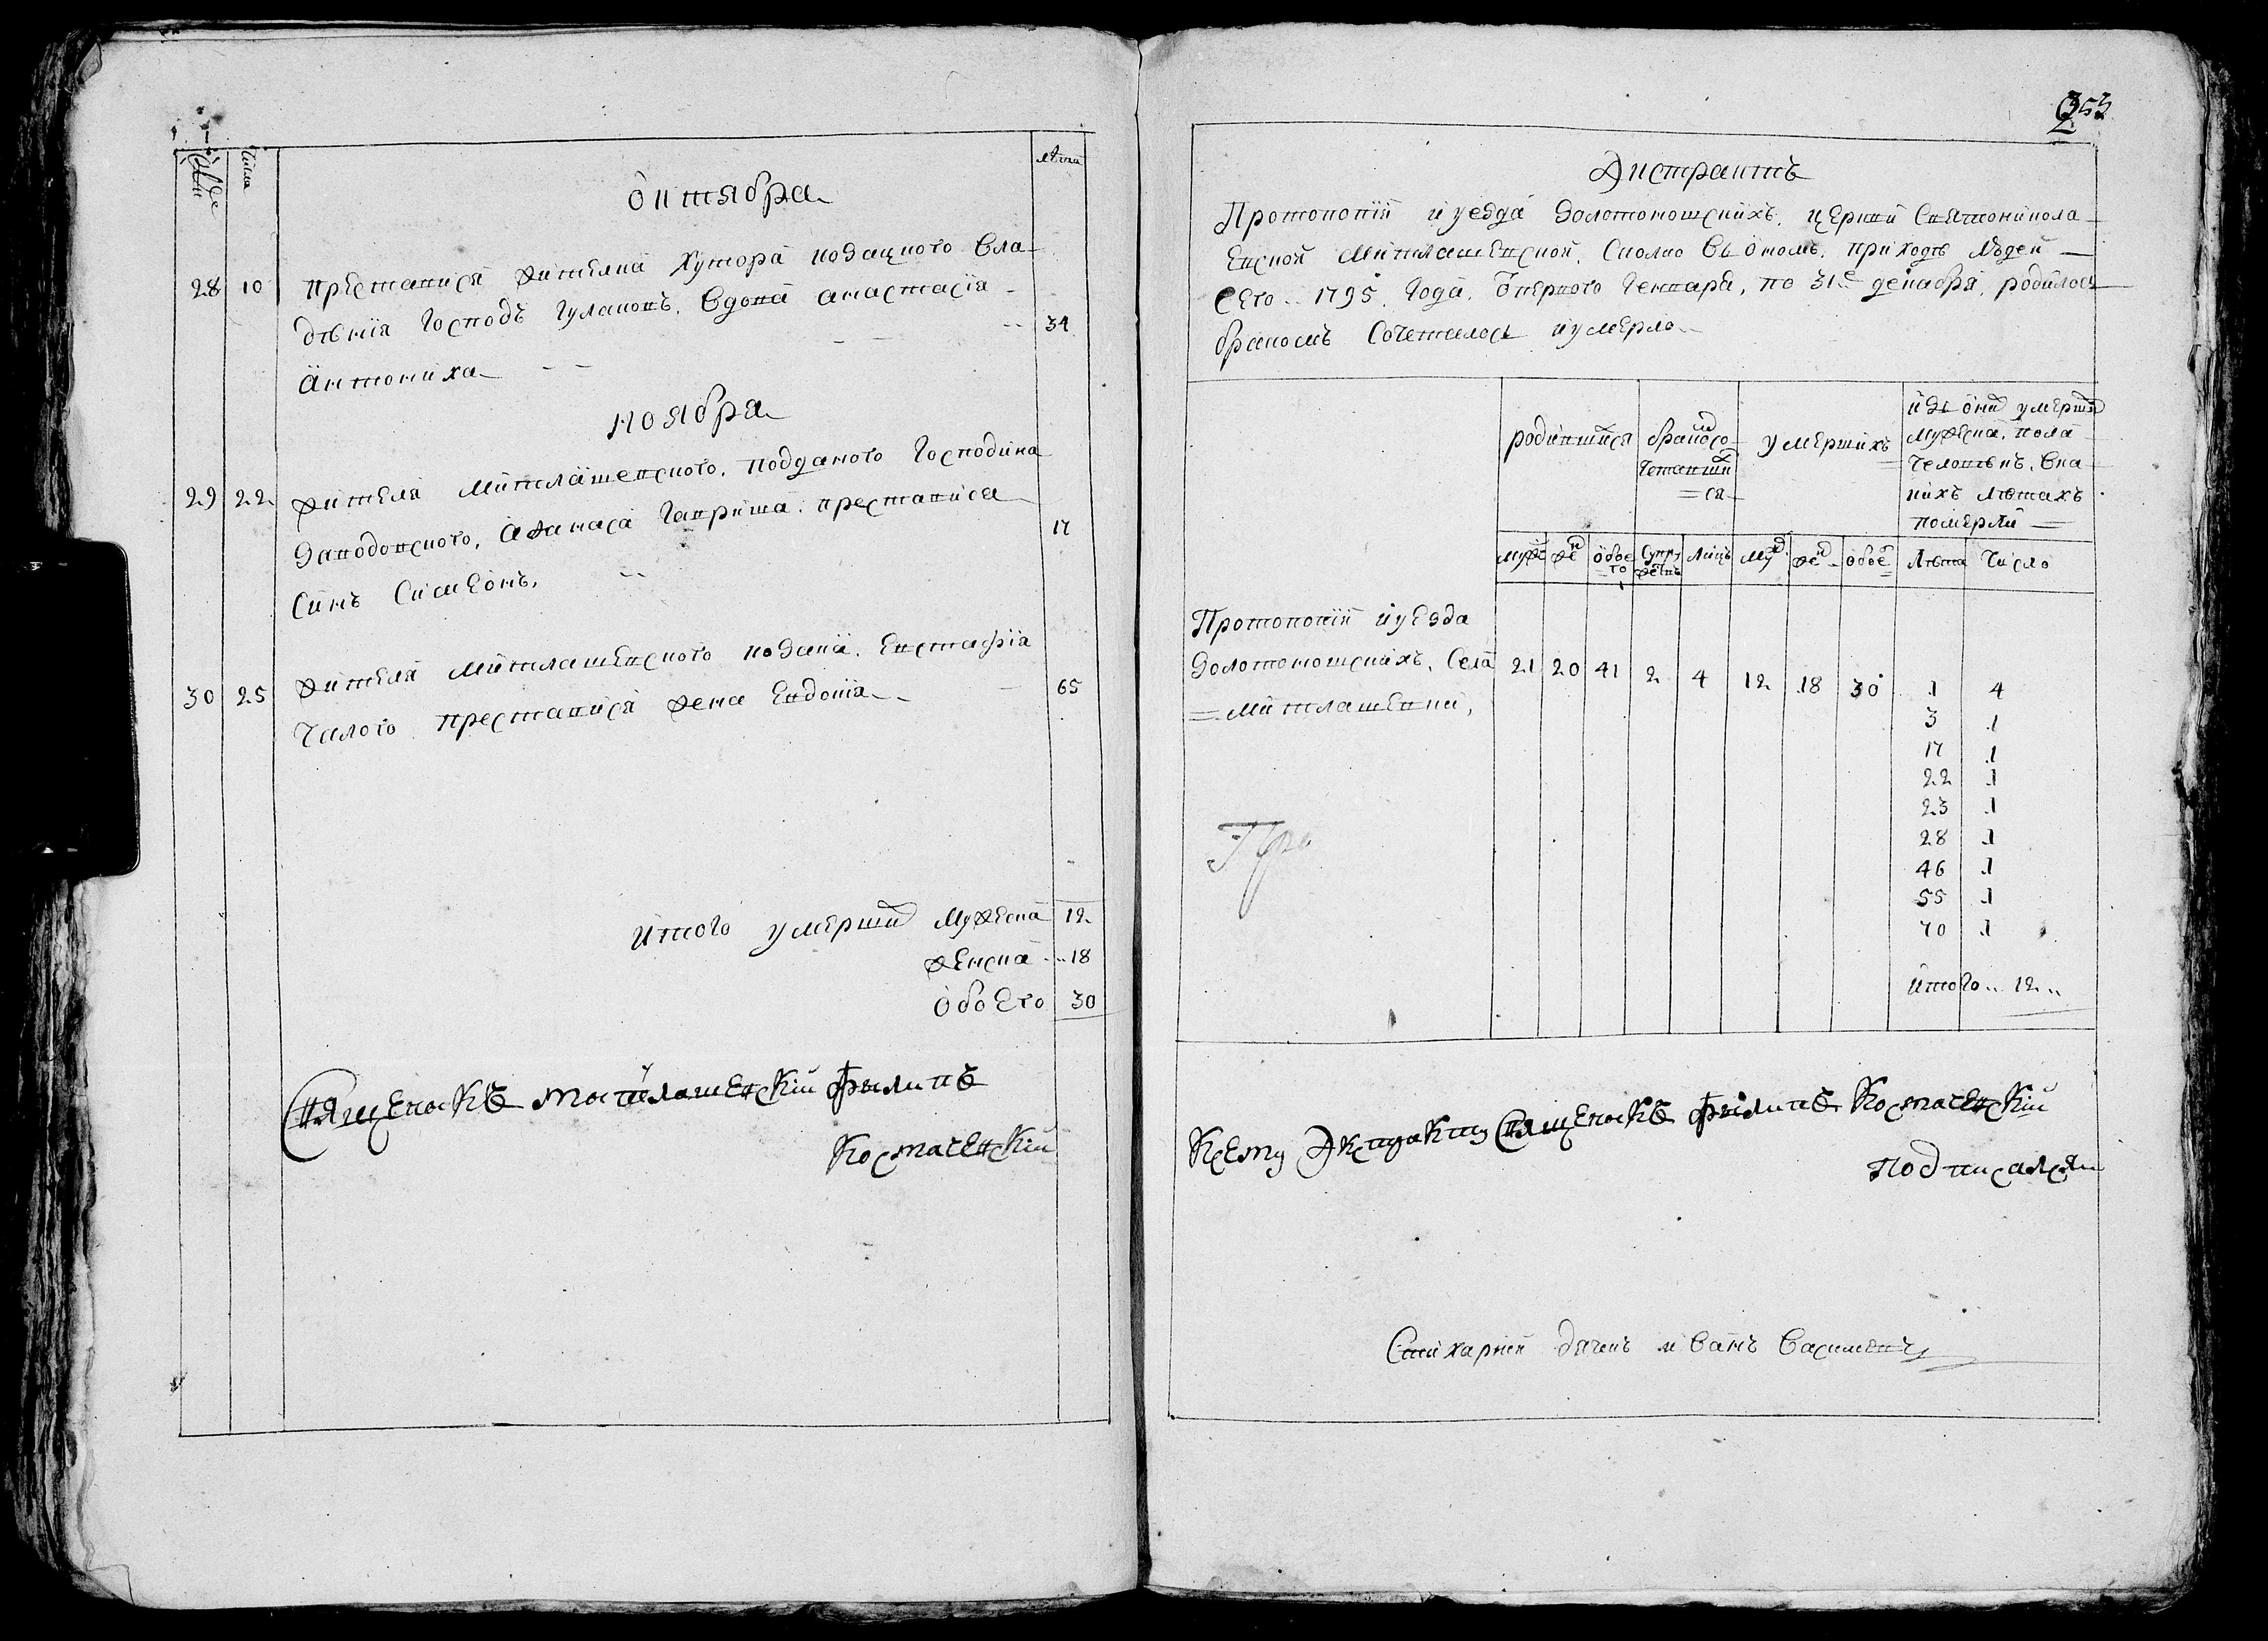 Числа
лѣта
октября
28 10 престависѧ жителка хутора козацкого вла-
дѣнія господъ гулаковъ, вдова анастасія
антониха 34
ноября
29 22 жителя митлашевского, подданого господина
Заводовского, афанаса гавриша, преставися
синъ Симеонъ, 17
30 25 жителя митлашевского козака, евстафія
чалого преставися жена евдокія 65
итого умерших мужеска 12
женска 18
обоего 30
Священикъ митлашевскій филипъ
Космачевскій
353
Экстрактъ
Протопопій и уезда Золотоношскихъ, церкви Святоникола-
евской митлашевской, сколко въ ономъ приходѣ людей
сего 1795 года, с первого генваря, по 31е декабря, родилось
бракомъ сочеталось и умерло
родившихся
бракосо-
четавших
ся
умершихъ
изъ оних умерших
мужеска пола
человѣкъ, в ка-
кихъ лѣтахъ
померли
муж жен обоего Супружествъ Лицъ муж жен обоего Лѣта Число
Протопопій и уезда
Золотоношскихъ, села
митлашевки, 21 20 41 2 4 12 18 30 1 4
3 1
17 1
22 1
23 1
28 1
46 1
55 1
70 1
итого 12
Пре
К сему Экстракту Священикъ филипъ Космачевскій
подписался
Стихарний дячекъ иванъ Василевичъ